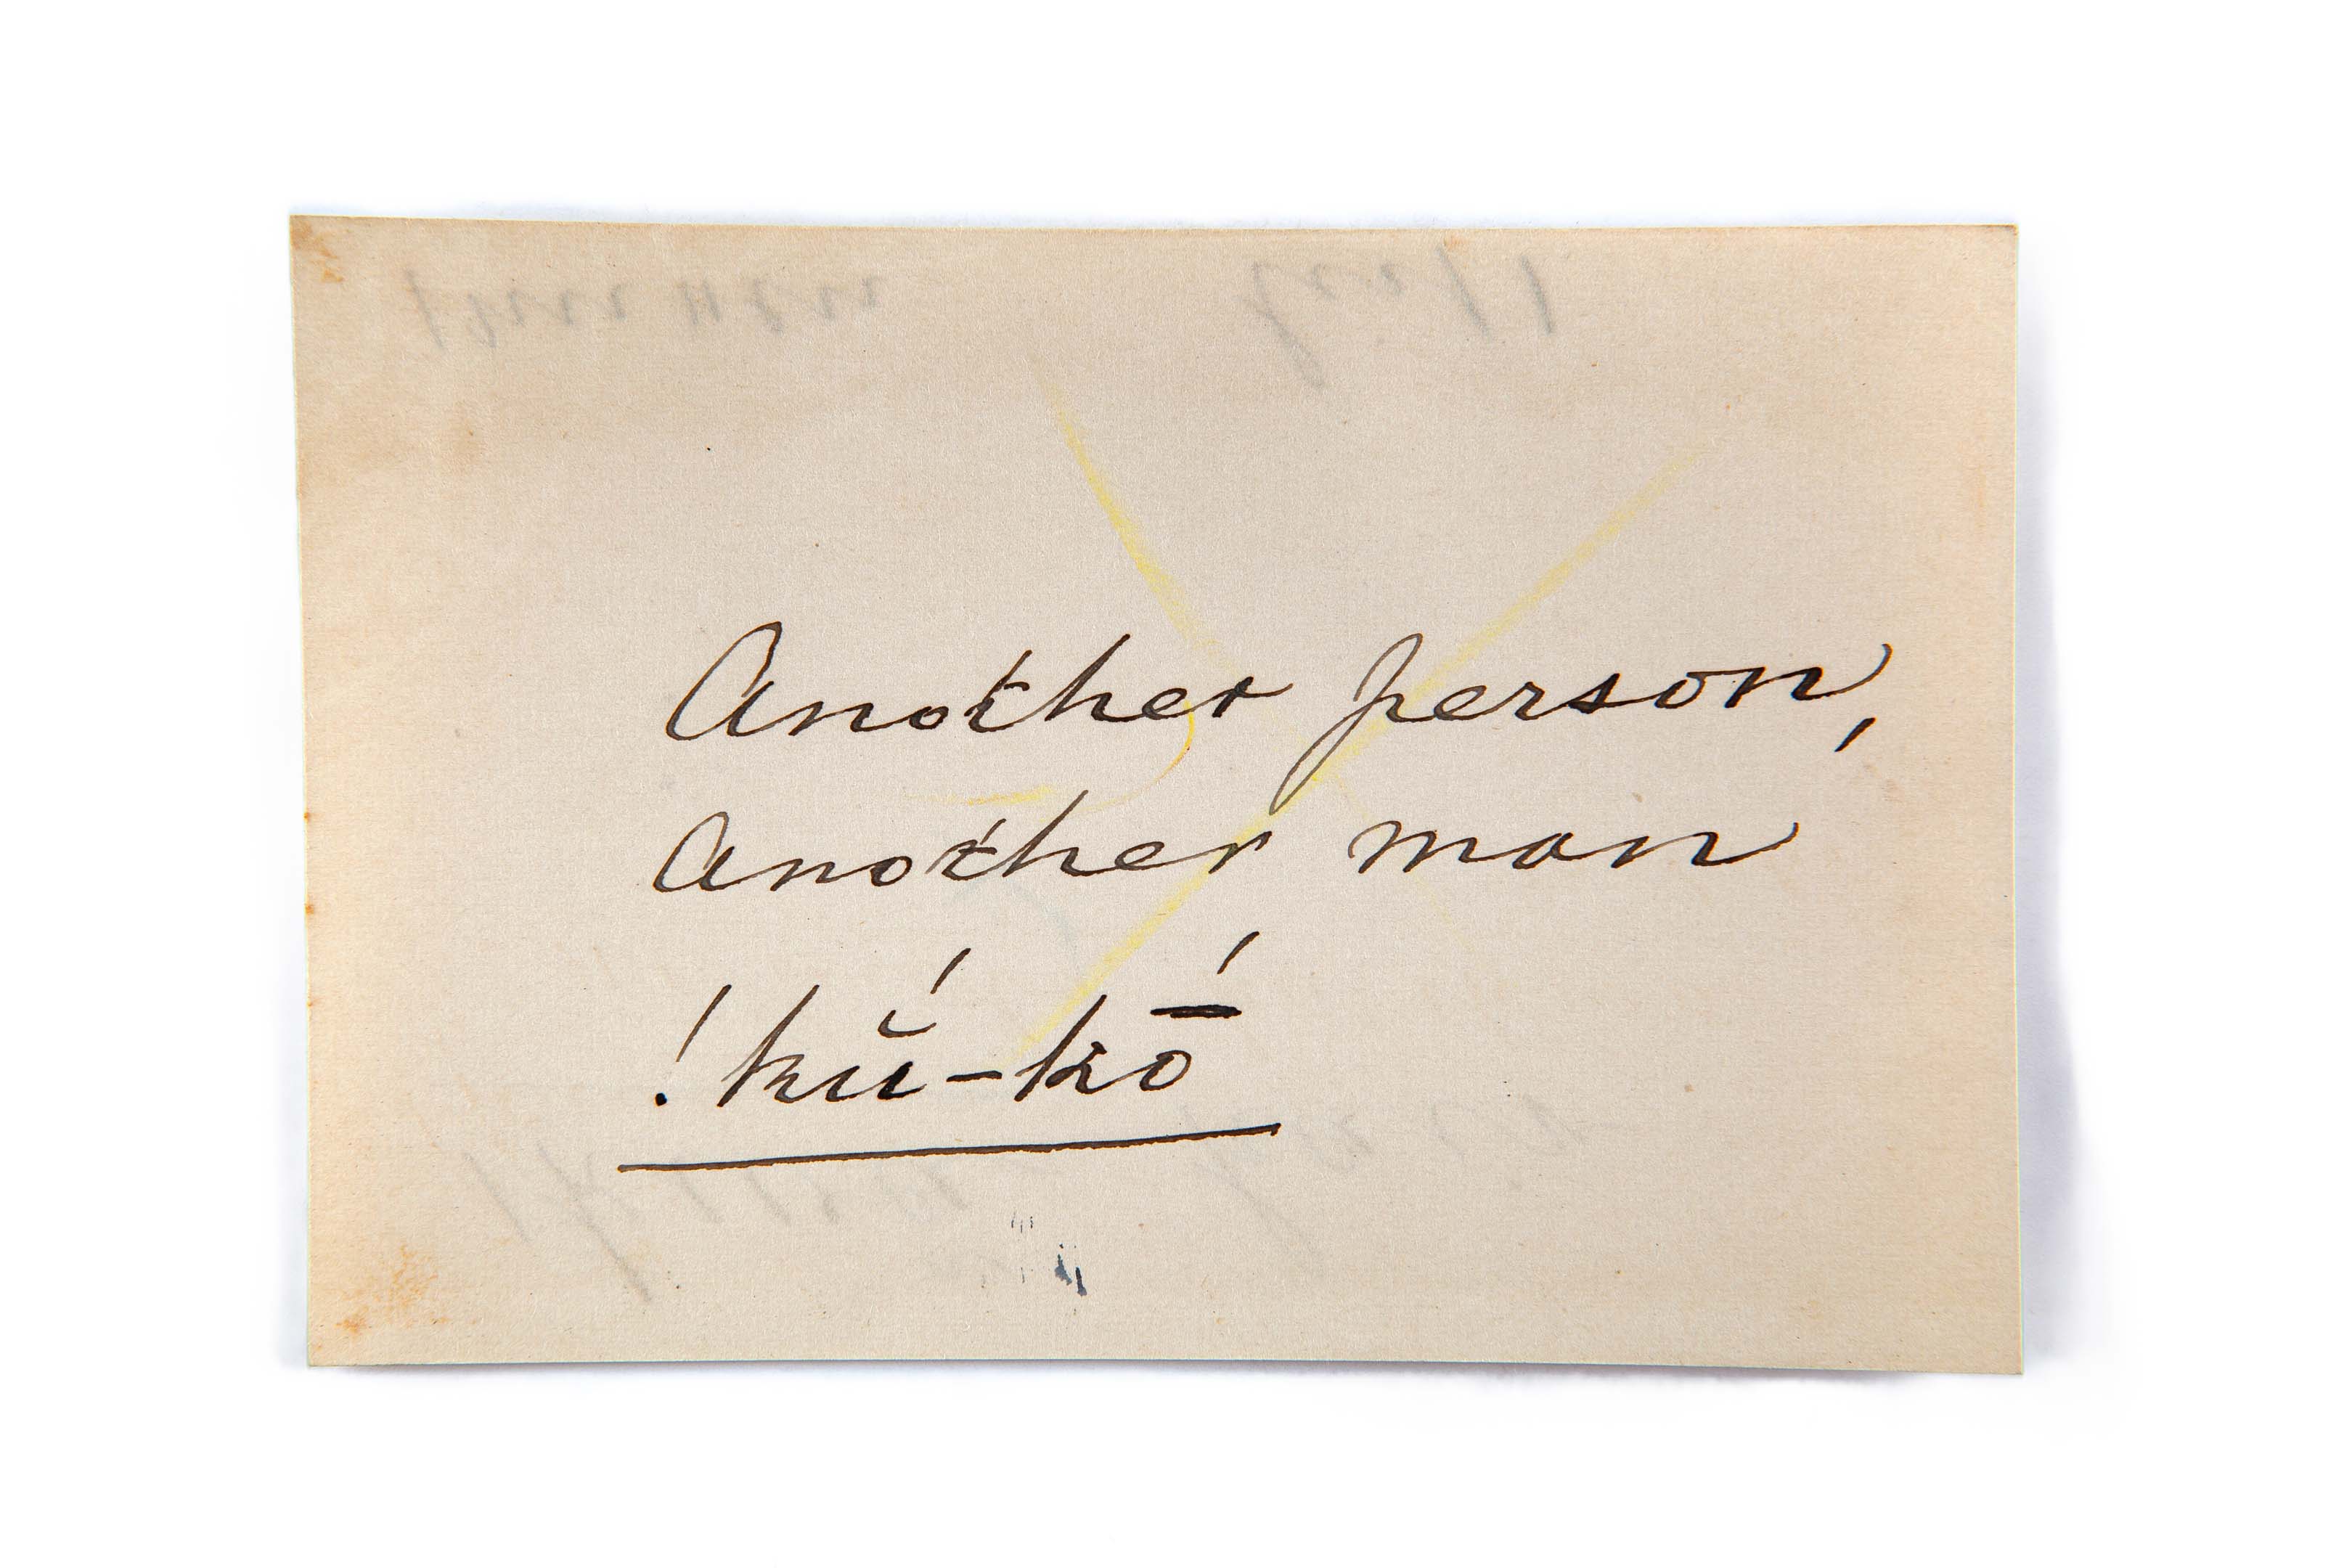 Another person,
another man
!kŭ́-kṓ